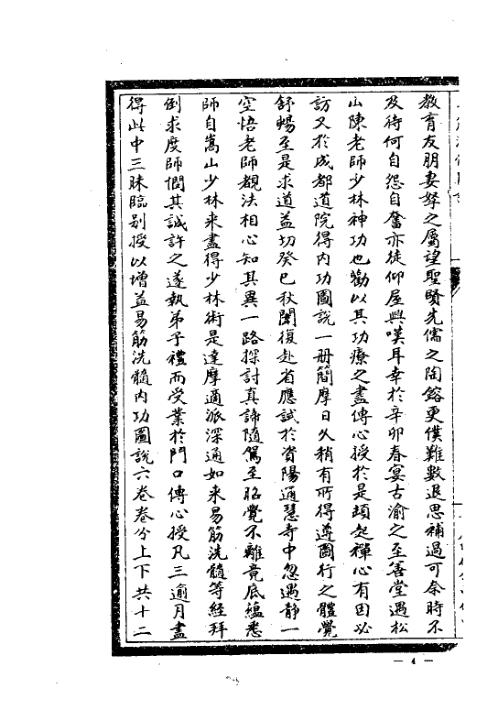 教育友朋妻孥之屬望聖賢先儒之陶鎔更僕難數退思補過可奈時不
及待何自怨自奮亦徒仰屋興嘆耳幸於辛卯春宴古渝之至善堂遇松
山陳老師少林神功也勸以其功療之盡傳心授於是頭起禪心有因必
訪又於成都道院得內功圖說一册簡摩日久稍有所得遵圖行之體覺
舒暢至是求道益切癸巳秋闈復赴省應試於資陽通慧寺中忽遇靜一
空悟老師覩法相心知其異一路探討真諦隨駕至昭覺不離竟底蘊悉
師自嵩山少林來盡得少林術是達摩適派深通如來易筋洗髓等經拜
倒求度師憫其誠許之遂執弟子禮而受業於門口傳心授凡三逾月盡
得此中三昧臨别授以增益易筋洗髓內功圖說六卷卷分上下共十二
— 4 —